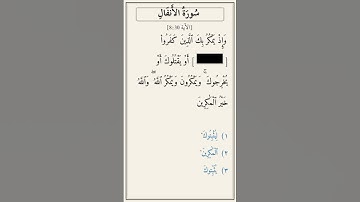 سُورَةُ الأَنفَالِ
[الآية 30 :8]
وَإِذْ يَمْكُرُ بِكَ ٱلَّذِينَ كَفَرُوا۟
[ ] أَوْ يَقْتُلُوكَ أَوْ
يُخْرِجُوكَ ۚ وَيَمْكُرُونَ وَيَمْكُرُ ٱللَّهُ ۖ وَٱللَّهُ
خَيْرُ ٱلْمَـٰكِرِينَ
١) لِيُثْبِتُوكَ
٢) ٱلْمَـٰكِرِينَ
٣)